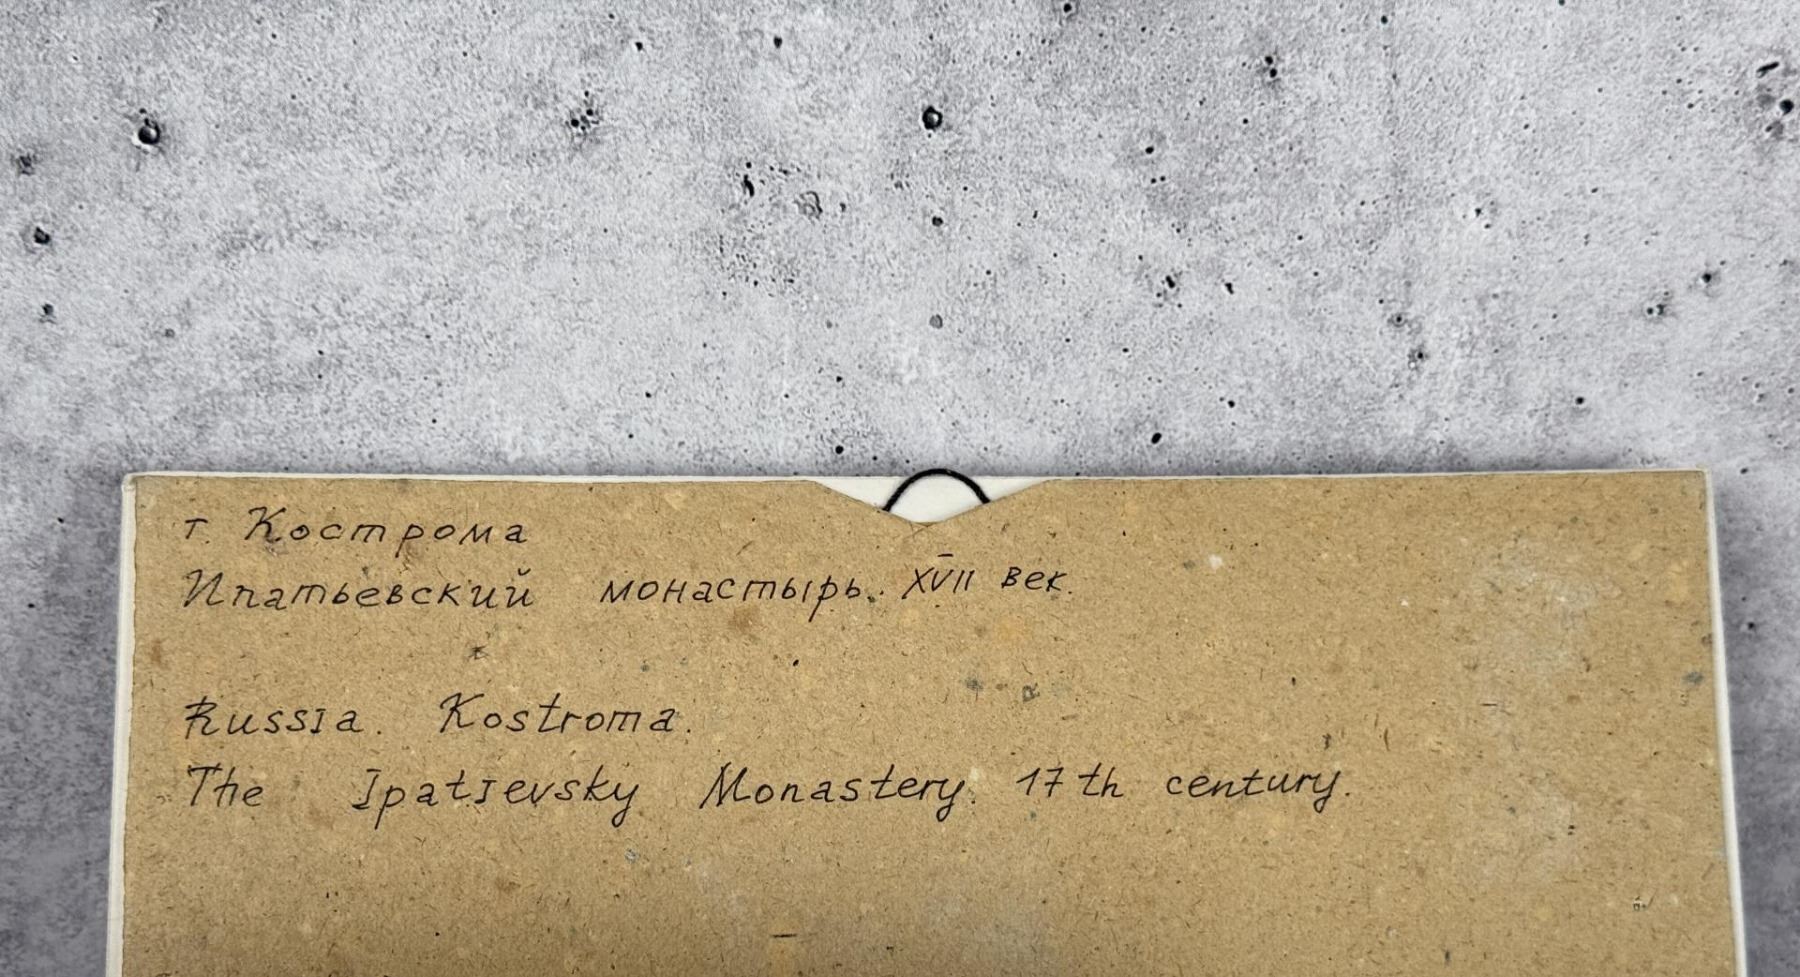 г. Кострома
Ипатьевский монастырь. XVII век.
Russia. Kostroma.
The Ipatievsky Monastery. 17th century.